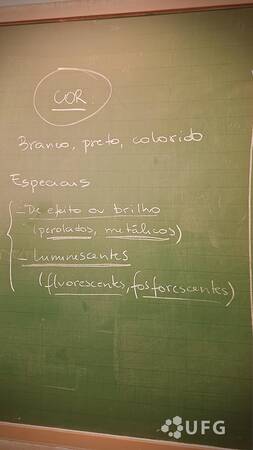 COR
Branco, preto, colorido
Especiais
- De efeito ou brilho
(perolados, metálicos)
- Luminescentes
(fluorescentes, fosforescentes)
UFG